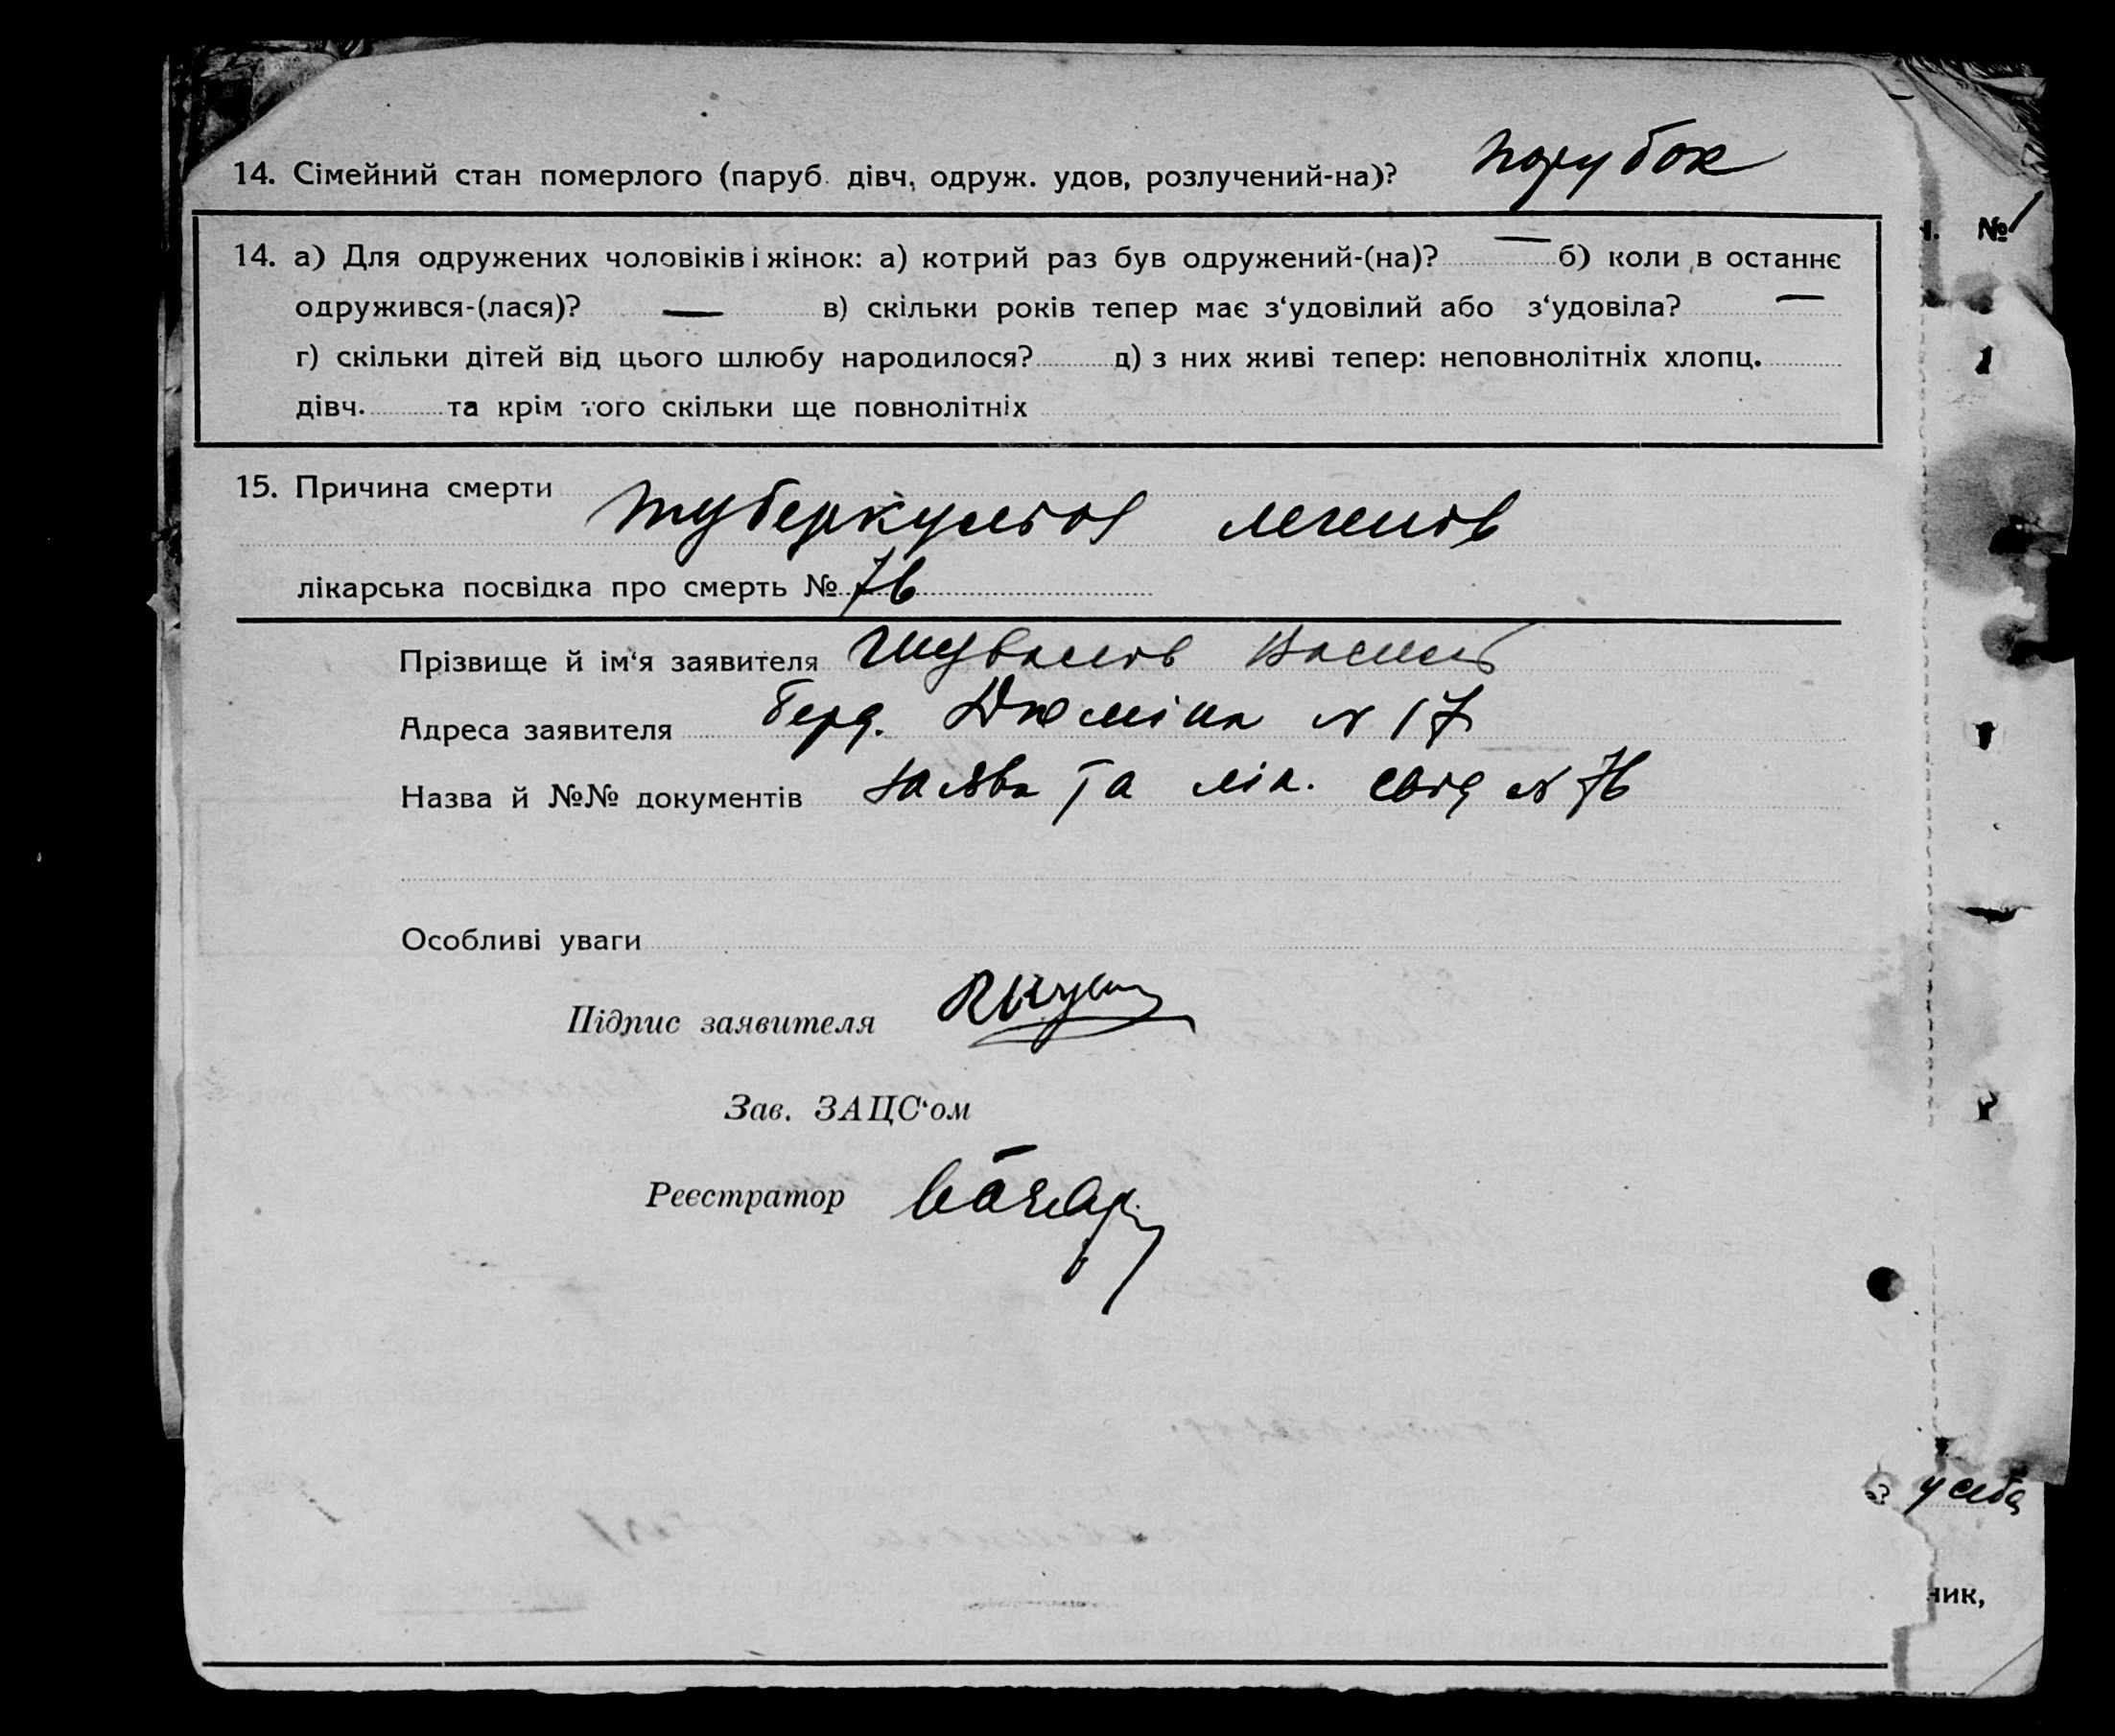 14. Сімейний стан померлого (паруб. дівч, одруж. удов, розлучений-на)? парубок
14. а) Для одружених чоловіків і жінок: а) котрий раз був одружений-(на)? — б) коли в останнє
одружився-(лася)? — в) скільки років тепер має з‘удовілий або з‘удовіла? —
г) скільки дітей від цього шлюбу народилося? д) з них живі тепер: неповнолітніх хлопц.
дівч. та крім того скільки ще повнолітніх
15. Причина смерти
туберкульоз легенів
лікарська посвідка про смерть № 76
Прізвище й ім‘я заявителя Шувалов Василь
Адреса заявителя Берд. Дюміна № 17
Назва й №№ документів заява та лік. свід № 76
Особливі уваги
Підпис заявителя
Зав. ЗАЦС‘ом
Реєстратор
№ 1
у себя
ник,